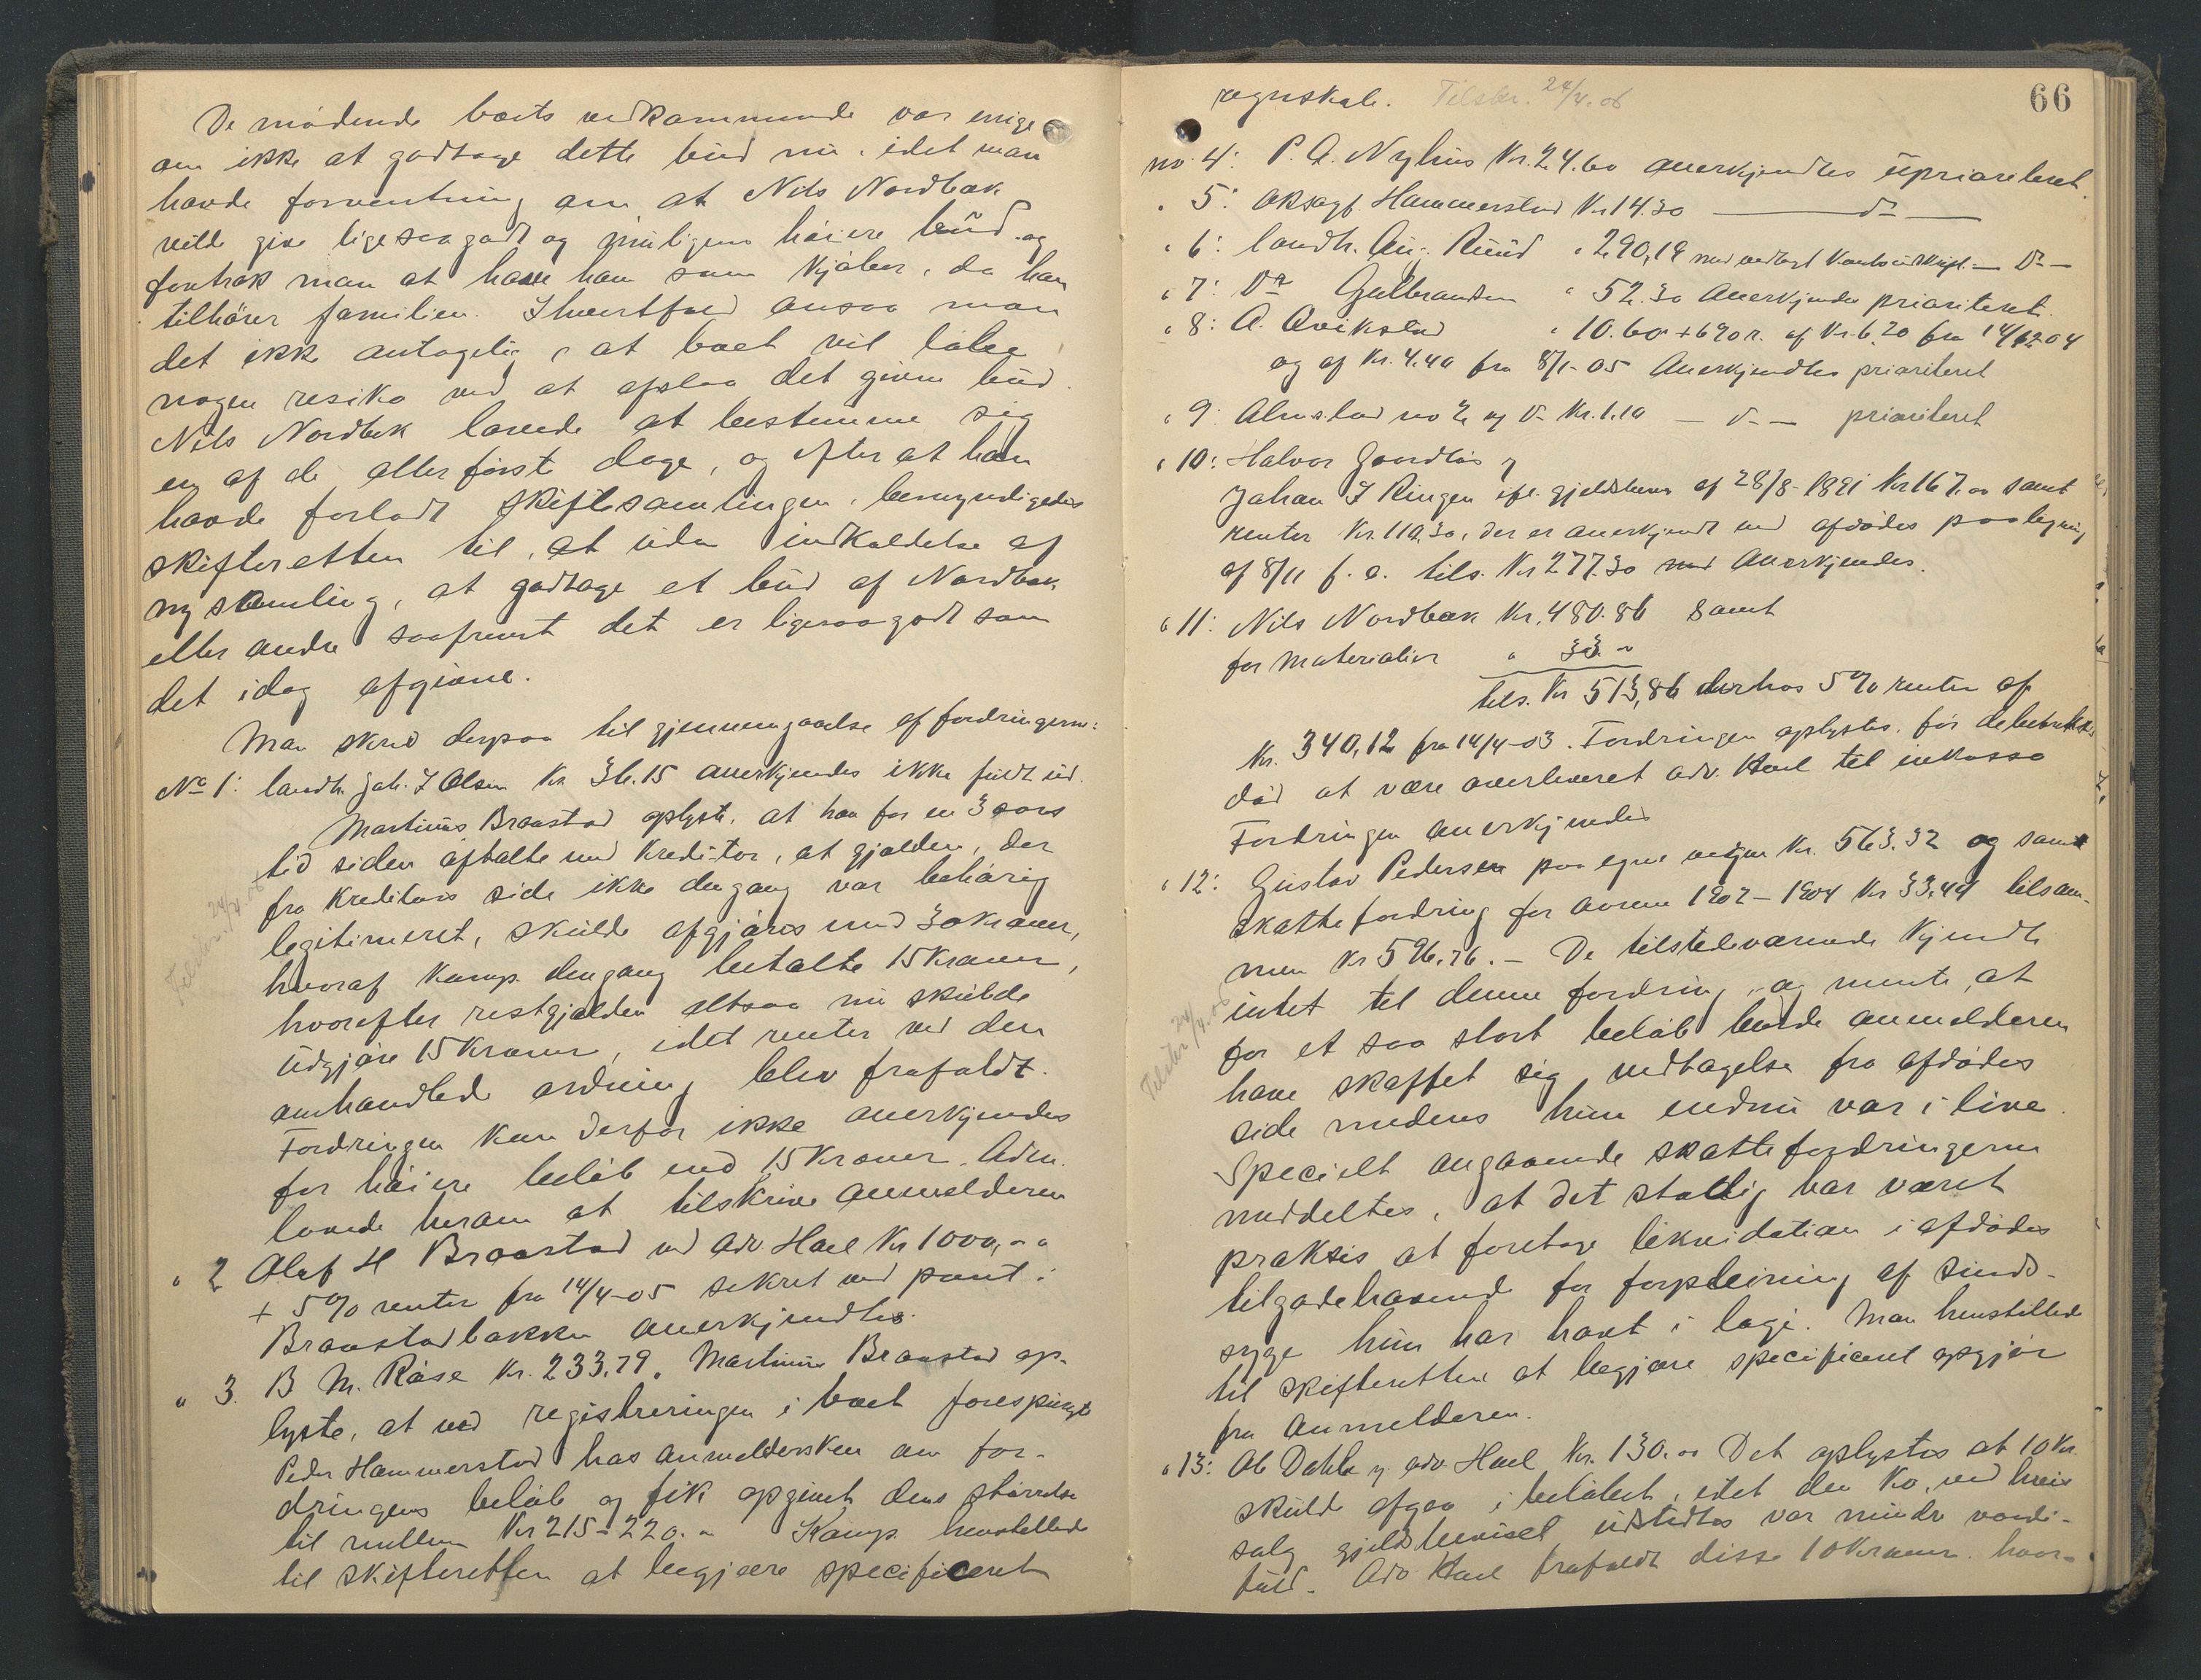 De mødende boets vedkommende var enige
om ikke at godtage dette bud nu, idet man
havde forventning om at Nils Nordbæk
vilde give ligesaa godt og muligens høiere bud og
foretrak man at have ham som kjøber, da han
tilhører familien. Ihvertfald ansaa man
det ikke antagelig, at boet vil løbe
nogen resiko ved at afslaa det givne bud.
Nils Nordbæk lovede at bestemme sig
en af de allerførste dage, og efter at han
havde forladt skiftesamlingen, bemyndigedes
skifteretten til, at uden indkaldelse af
ny samling, at godtage et bud af Nordbæk
eller andre saafremt det er ligesaa godt som
det idag afgivne.
Man skred derpaa til gjennemgaaelse af fordringerne:
No 1: landh. Joh. J Olsen Kr. 36.15 anerkjendes ikke fuldt ud.
Martinus Braastad oplyste, at han for en 3 aars
tid siden aftalte med kreditor, at gjælden, der
fra kreditors side ikke dengang var behørig
legitimeret, skulde afgjøres med 30 kroner,
hvoraf komp. dengang betalte 15 kroner,
hvorefter restgjælden altsaa nu skulde
udgjøre 15 kroner, idet renter ved den
omhandlede ordning blev frafaldt.
Fordringen kan derfor ikke anerkjendes
for høiere beløb end 15 kroner. Adm.
lovede herom at tilskrive anmelderen
Tilskr. 24/4.06
" 2 Olaf H Braastad ved adv. Hoel Kr 1000,00
+ 5% renter fra 14/4-05 sikret ved pant i
Braastadbakken anerkjendtes.
" 3. B M. Råse Kr. 233.79. Martinus Braastad op-
lyste, at ved registreringen i boet forespurgte
Peder Hammerstad hos anmeldersken om for-
dringens beløb og fik opgivet dens størrelse
til mellem Kr 215-220.00 Komp. henstillede
til skifteretten at begjære specificeret
66
regnskab. Tilskr. 24/4.06
no 4: P. A. Nyhus Kr. 24.60 anerkjendtes uprioriteret
" 5: Hammerstad Kr 14.30 — do —
" 6: landh. Aug. Ruud " 290,19 med vedtagt Kontoudskrift — Do —
" 7: Do Gulbrandsen " 52.30 Anerkjendes prioriteret.
" 8: A. Avikstad " 10.60 + 6% r. af Kr. 6.20 fra 14/12 04
og af Kr. 4.40 fra 8/1-05 Anerkjendtes prioriteret
" 9: Almstad no 2 og Do Kr. 1.10 — do — prioriteret
" 10: Halvor Gaardløs og
Johan J Ringen ifl. gjeldsbevis af 28/8-1891 Kr 167.00 samt
renter Kr. 110.30, der er anerkjendt ved afdødes paategning
af 8/11 f. a. tils. Kr 277.30 Anerkjendes.
" 11: Nils Nordbæk Kr. 480.86 samt
for materialier " 33.00
tils. Kr 513,86 derhos 5% renter af
Kr. 340,12 fra 14/4-03. Fordringen oplystes, før debetricks
død at være overleveret adv. Hoel til inkasso
Fordringen anerkjendes
" 12: Gustav Pedersen paa egne vegne Kr. 563.32 og samt
skattefordring for aarene 1902-1904 Kr 33,44 tilsam-
men Kr 596.76. - De tilstedeværende kjendte
intet til denne fordring, og mente, at
for et saa stort beløb burde anmelderen
have skaffet sig vedtagelse fra afdødes
side medens hun endnu var i live.
Tilskr 24/4.06
Specielt angaaende skattefordringerne
meddeltes, at det stadig har været
praksis at foretage likvidation i afdødes
tilgodehavende for forpleining af sinds-
syge hun har havt i logi. Man henstillede
til skifteretten at begjære specificeret opgjør
fra anmelderen.
" 13: Ab Dahle v. adv. Hoel Kr. 130.00 Det oplystes at 10 Kr
skulde afgaa i beløbet, idet den ko, ved hvis
salg gjeldsbeviset udstedtes var mindre værdi-
fuld. Adv Hoel frafaldt disse 10 kroner, hvor-